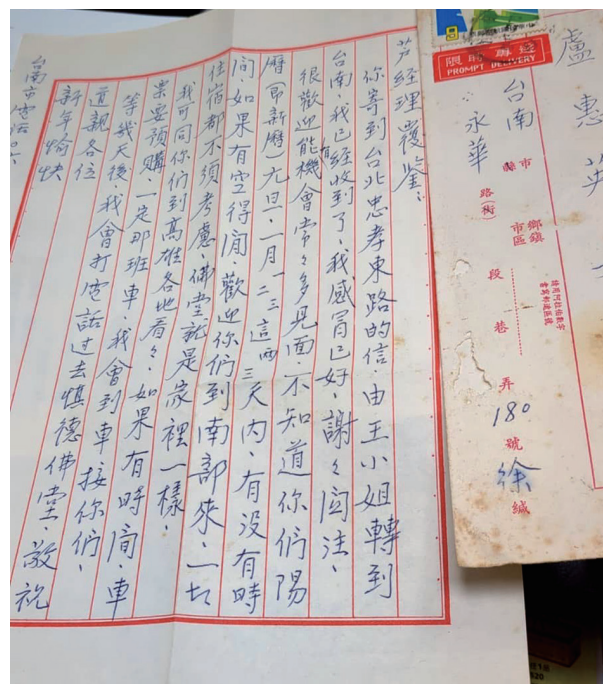 芦经理覆鉴：
你寄到台北忠孝東路的信，由王小姐轉到
台南，我已經收到了，我感冒已好，謝々関注，
很歡迎能有機會常々多見面，不知道你們陽
曆（即新曆）元旦，一月一二三這兩三天內，有没有時
間如果有空得閒，歡迎你們到南部來，一切
住宿都不須考慮，佛堂就是家裡一樣，
我可同你們到高雄各地看々，如果有時间，車
票要預購，一定那班車，我會到車接你們，
等幾天後，我會打电話过去慎德佛堂，敬祝
道親各位
新年愉快
台南市电話
限時專送
PROMPT DELIVERY
盧惠英
台南 市縣
永華 路(街)
鄉鎮市區
段
巷
弄
180 號
徐 緘